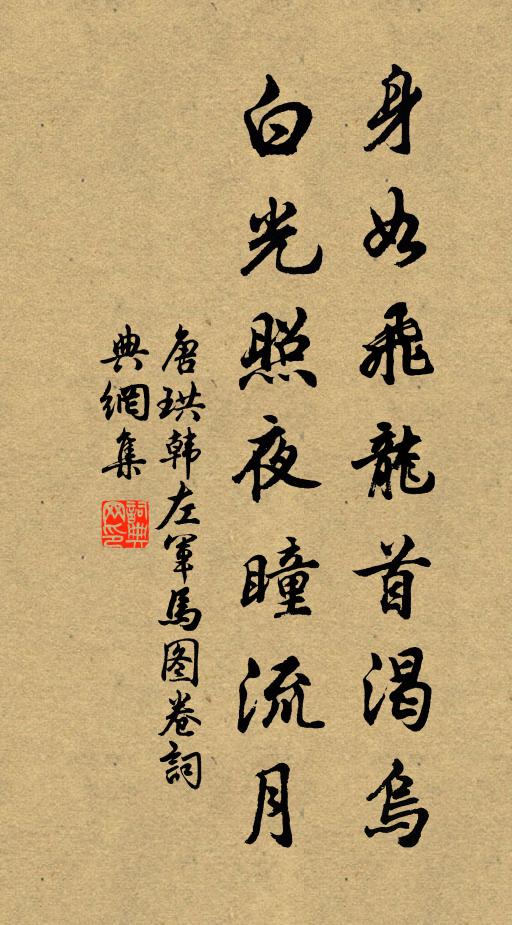 身如飛龍首渴烏
白光照夜瞳流月
唐珙韩左軍馬图卷詞
典網集
詞典
网印